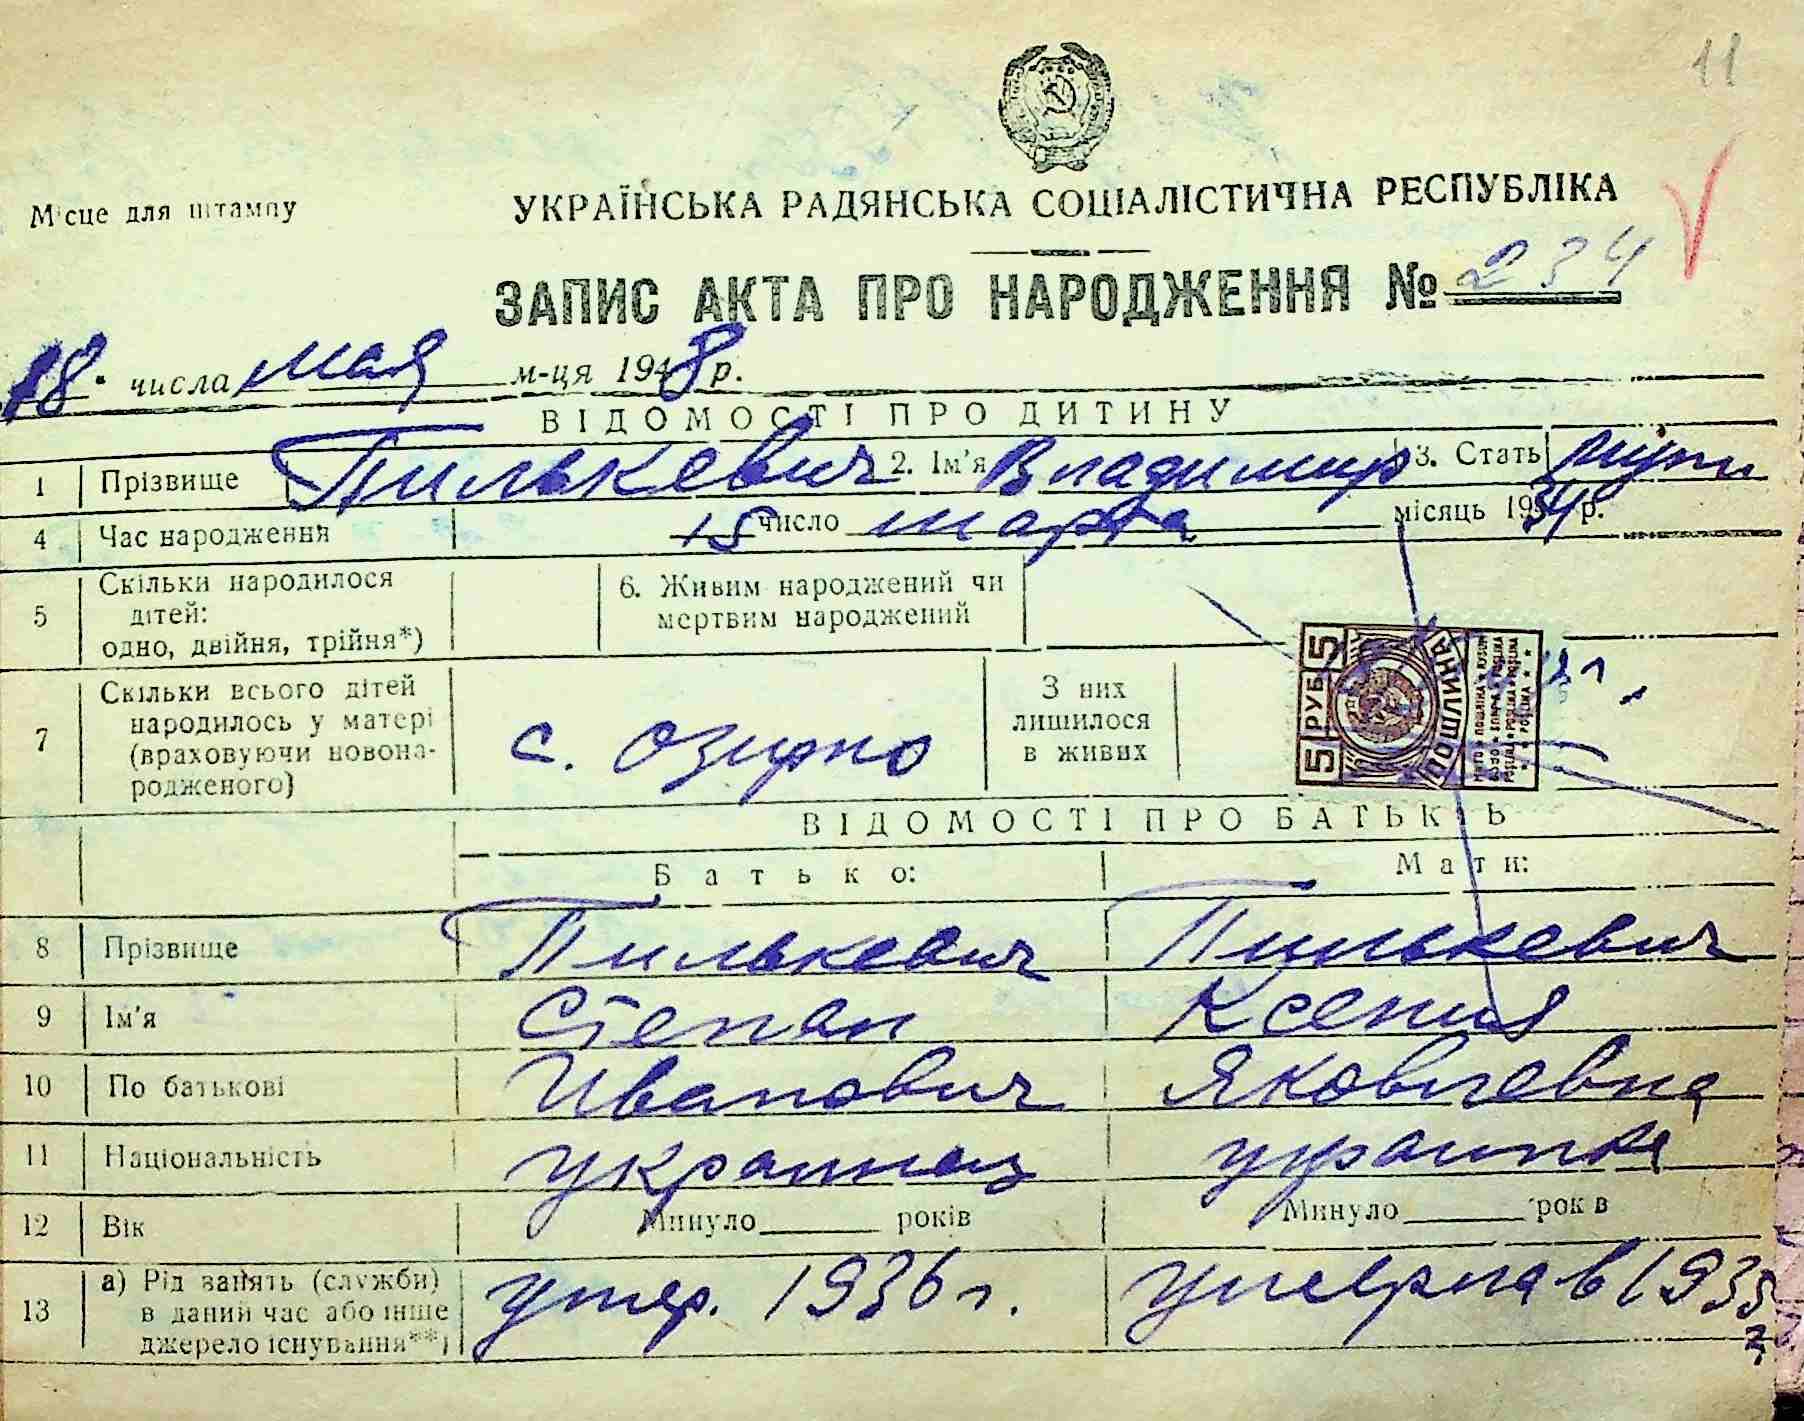 11
Місце для штампу
УКРАЇНСЬКА РАДЯНСЬКА СОЦІАЛІСТИЧНА РЕСПУБЛІКА
ЗАПИС АКТА ПРО НАРОДЖЕННЯ № 234
18 числа мая м-ця 1948 р.
ВІДОМОСТІ ПРО ДИТИНУ
1 Прізвище Пилькевич 2. Ім'я Владимир 3. Стать муж
4 Час народження 15 число марта місяць 1934 р.
5 Скільки народилося дітей: одно, двійня, трійня*)
6. Живим народжений чи мертвим народжений
7 Скільки всього дітей народилось у матері (враховуючи новонародженого) с. Озирно
З них лишилося в живих
5 РУБ 5
ПОШЛИНА
ВІДОМОСТІ ПРО БАТЬКІВ
Батько: Мати:
8 Прізвище Пилькевич Пилькевич
9 Ім'я Степан Ксения
10 По батькові Иванович Яковлевна
11 Національність украинец украинка
12 Вік Минуло років Минуло років
13 а) Рід занять (служби) в даний час або інше джерело існування**) умер. 1936 г. умерла в 1935 г.